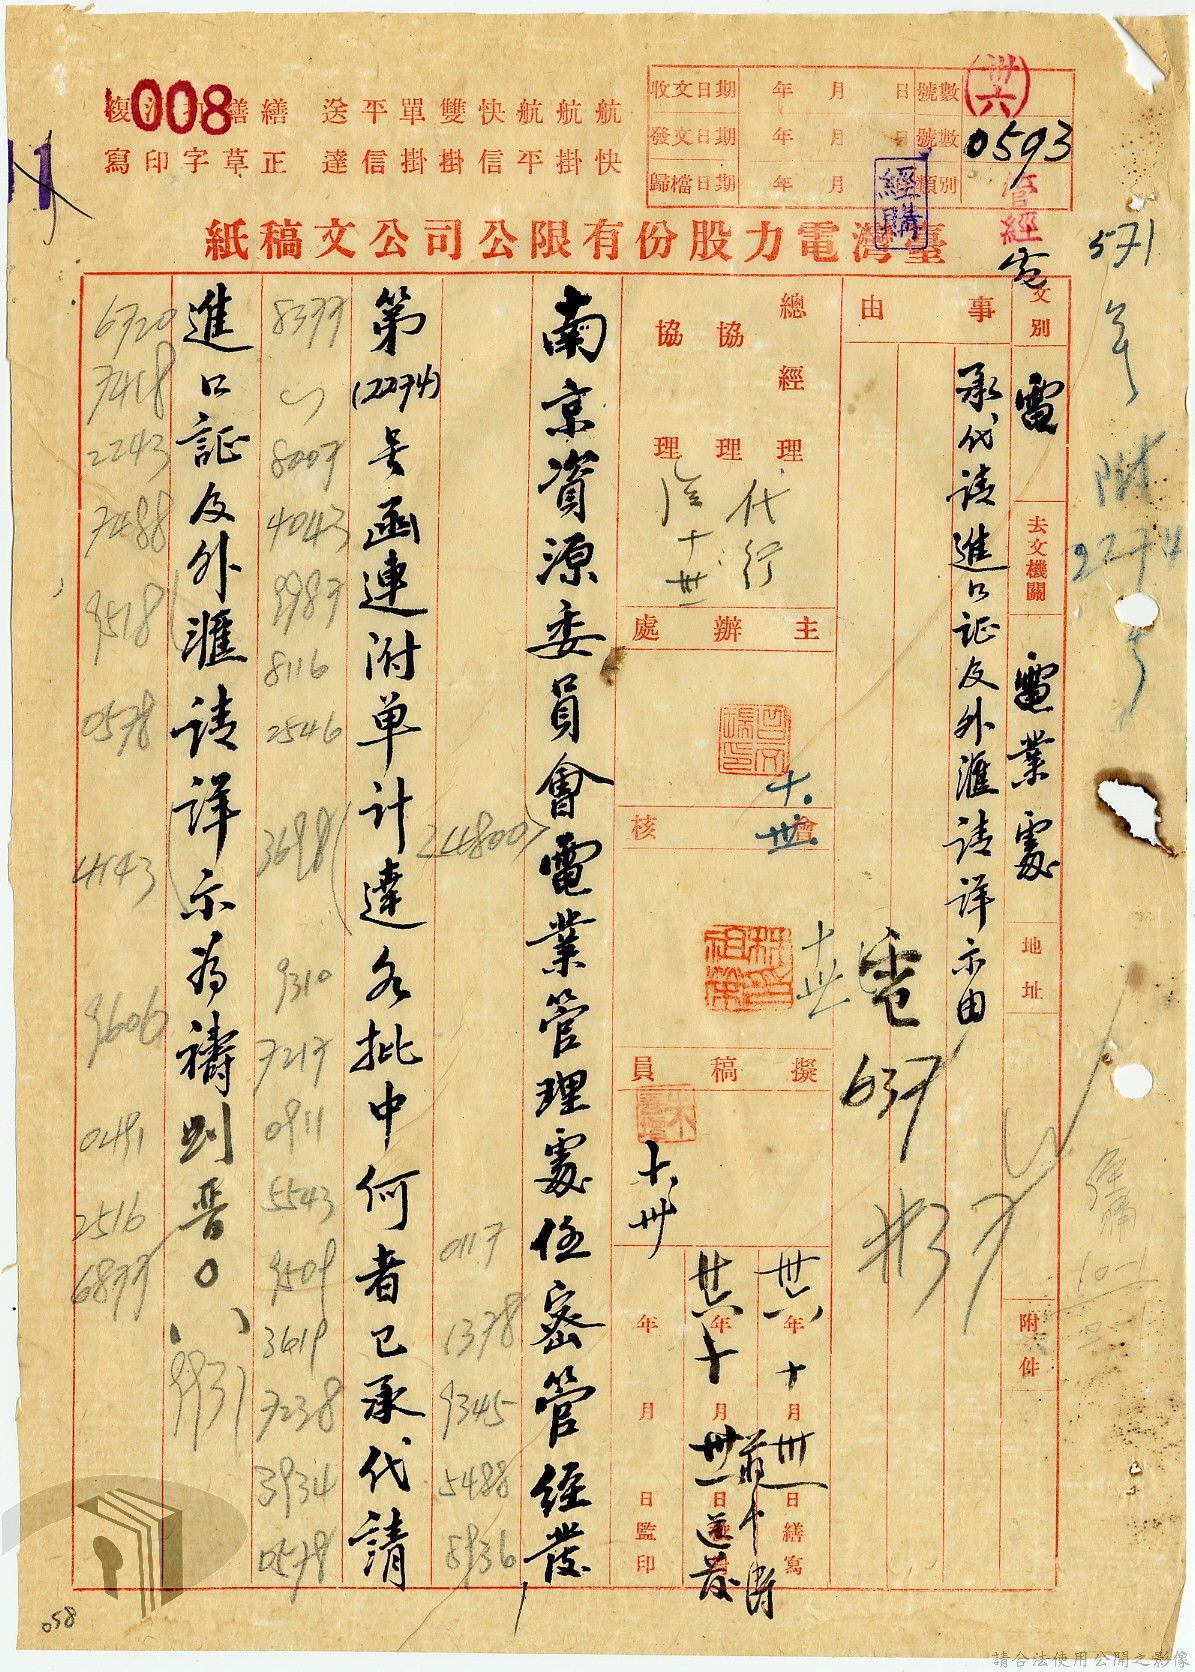 008
繕 送平單雙快航航航
寫印字草正 達信掛掛信平掛快
收文日期 年 月 日 號數
發文日期 年 月 日 號數
歸檔日期 年 月 類別
卅六
0593
管經
經購
臺灣電力股份有限公司公文稿紙
571
附
2274
文別 電
去文機關 電業處
地址
附件
事由
承代請進口証及外滙請詳示由
電 637
#37
總經理
協理
協理
代行
主辦處
十.卅
會核
擬稿員
十.卅
卅六年十月卅一日繕寫
卅六年十月卅一日
年 月 日監印
南京資源委員會電業管理處
密管經發
24800
0117
1378
9345
5488
8936
第(2274)号函連附单計達各批中何者已承代請
8377
8007
4043
9987
8116
2546
3698
9310
7217
0911
5543
9509
3619
7238
3934
0578
進口証及外滙請詳示為禱
6720
7418
2243
7488
9518
0578
4143
9606
0491
2516
6877
9931
058
請合法使用公開之影像